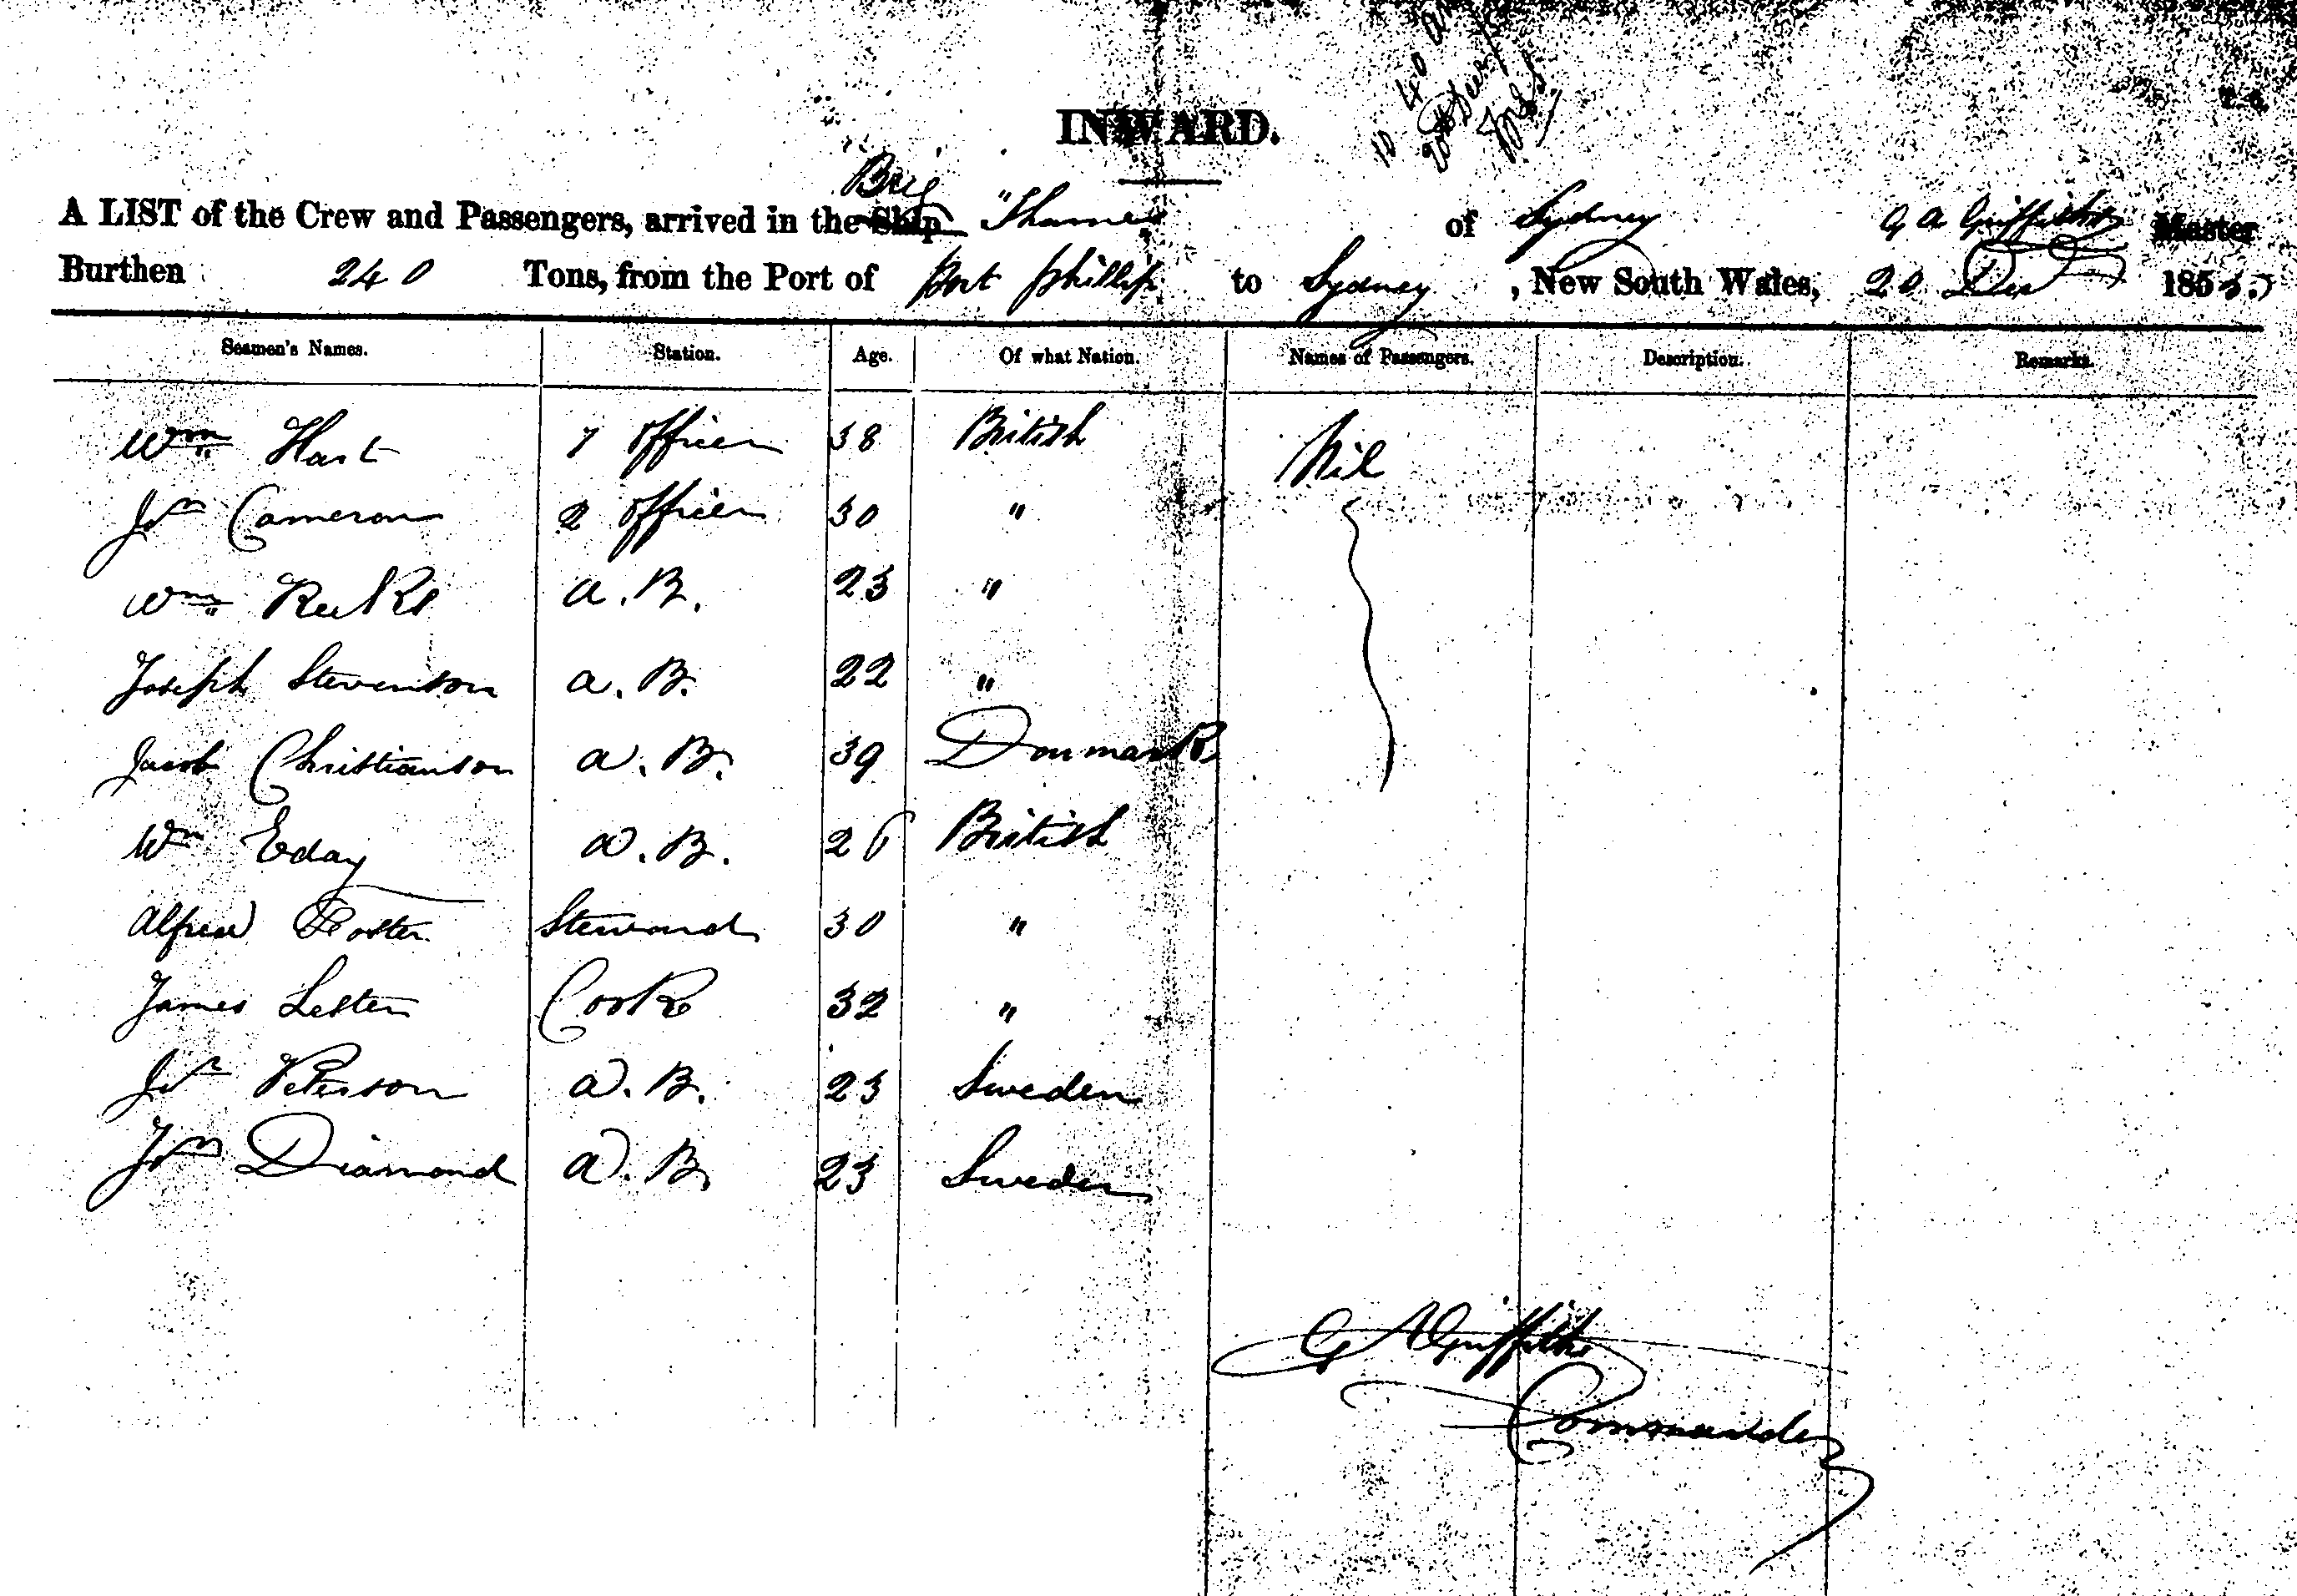 INWARD.
Brig
A LIST of the Crew and Passengers, arrived in the Ship "Thames of Sydney G A Griffiths Master
Burthen 240 Tons, from the Port of Port Phillip to Sydney, New South Wales, 20 Dec 1855.
Seamen's Names. Station. Age. Of what Nation. Names of Passengers. Description. Remarks.
Wm Hart 1 Officer 38 British Nil
Jn Cameron 2 Officer 30 "
Wm 23 a. B. "
Joseph Stevenson a. B. 22 "
Jacob Christianson a. B. 39 Denmark
Wm Eday a. B. 26 British
Alfred Foster Steward 30 "
James Lester Cooke 32 "
Jn Peterson a. B. 23 Sweden
Jn Diamond a. B. 23 Sweden
G A Griffiths
Commander